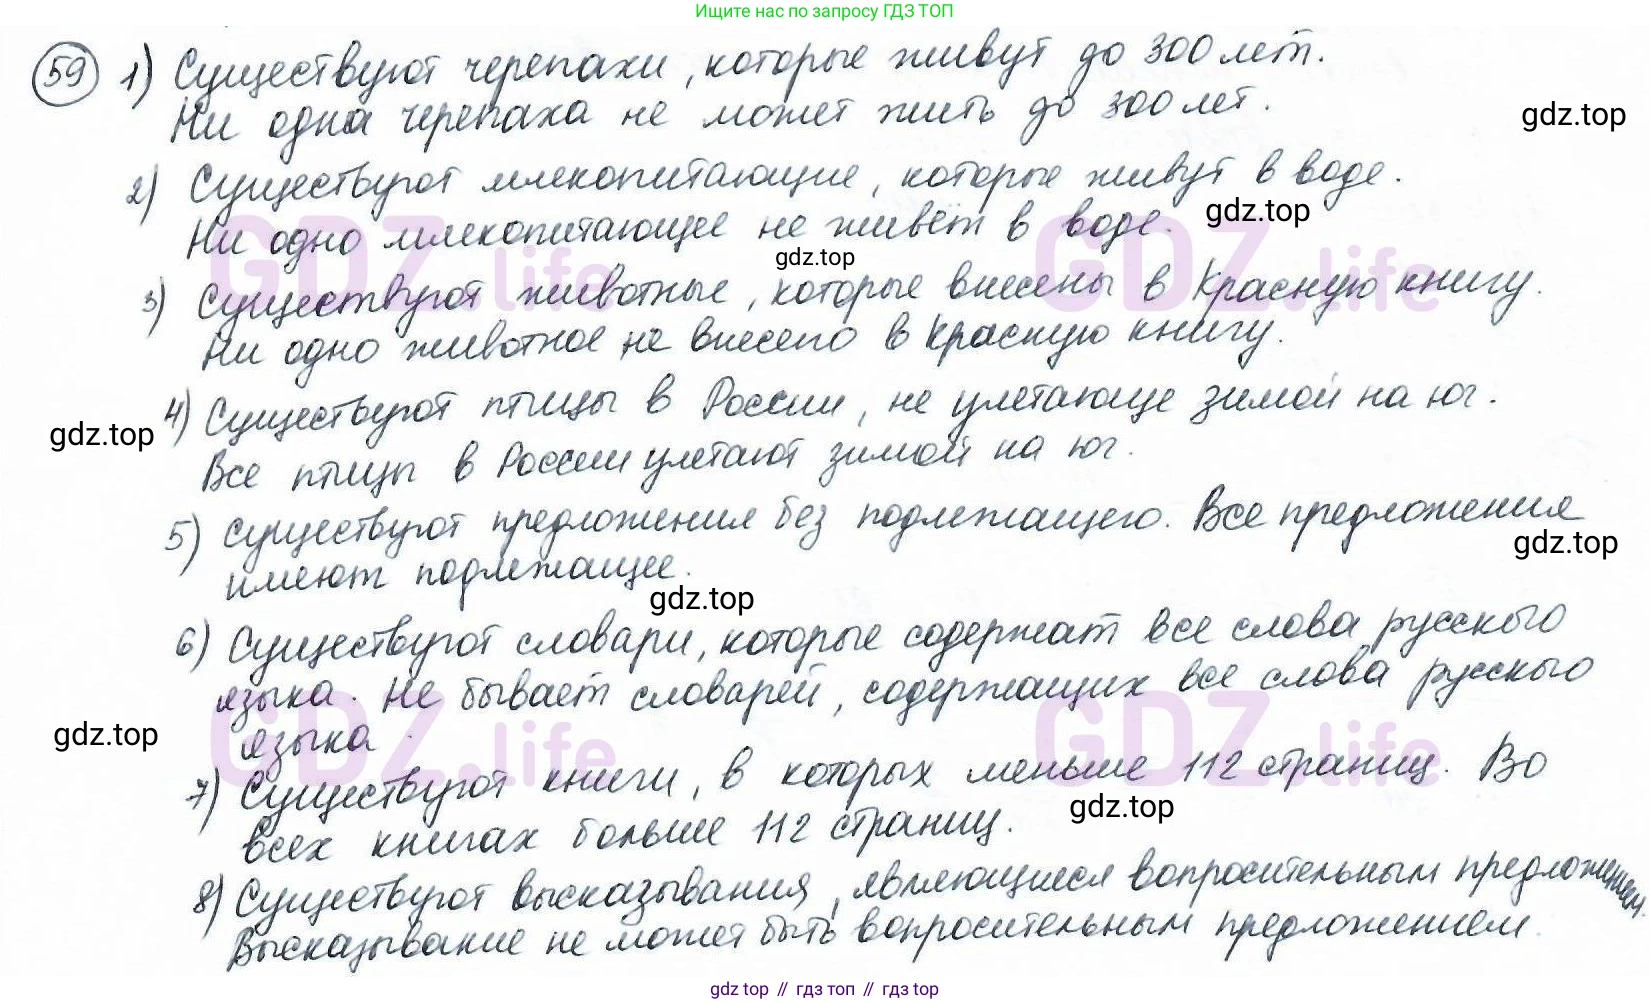 Ищите нас по запросу ГДЗ ТОП
59 1) Существуют черепахи, которые живут до 300 лет.
Ни одна черепаха не может жить до 300 лет.
gdz.top
2) Существуют млекопитающие, которые живут в воде.
gdz.top
Ни одно млекопитающее не живёт в воде.
GDZ.life GDZ.life
gdz.top
3) Существуют животные, которые внесены в Красную книгу.
Ни одно животное не внесено в Красную книгу.
4) Существуют птицы в России, не улетающие зимой на юг.
gdz.top
Все птицы в России улетают зимой на юг.
5) Существуют предложения без подлежащего. Все предложения
gdz.top
имеют подлежащее.
gdz.top
6) Существуют словари, которые содержат все слова русского
языка. Не бывает словарей, содержащих все слова русского
gdz.top
языка.
GDZ.life GDZ.life
7) Существуют книги, в которых меньше 112 страниц. Во
gdz.top
всех книгах больше 112 страниц.
8) Существуют высказывания, являющиеся вопросительным предложением.
Высказывание не может быть вопросительным предложением.
gdz top // гдз топ // gdz top